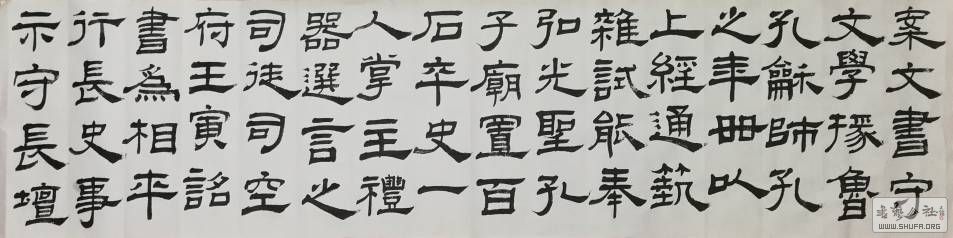 案文書守
文學掾魯
孔龢師孔
之年卌以
上經通蓺
雜試能奉
弘光聖孔
子廟置百
石卒史一
人掌主禮
器選言之
司徒司空
府王寅詔
書爲相平
行長史事
示守長壇
書藝公社
WWW.SHUFA.ORG